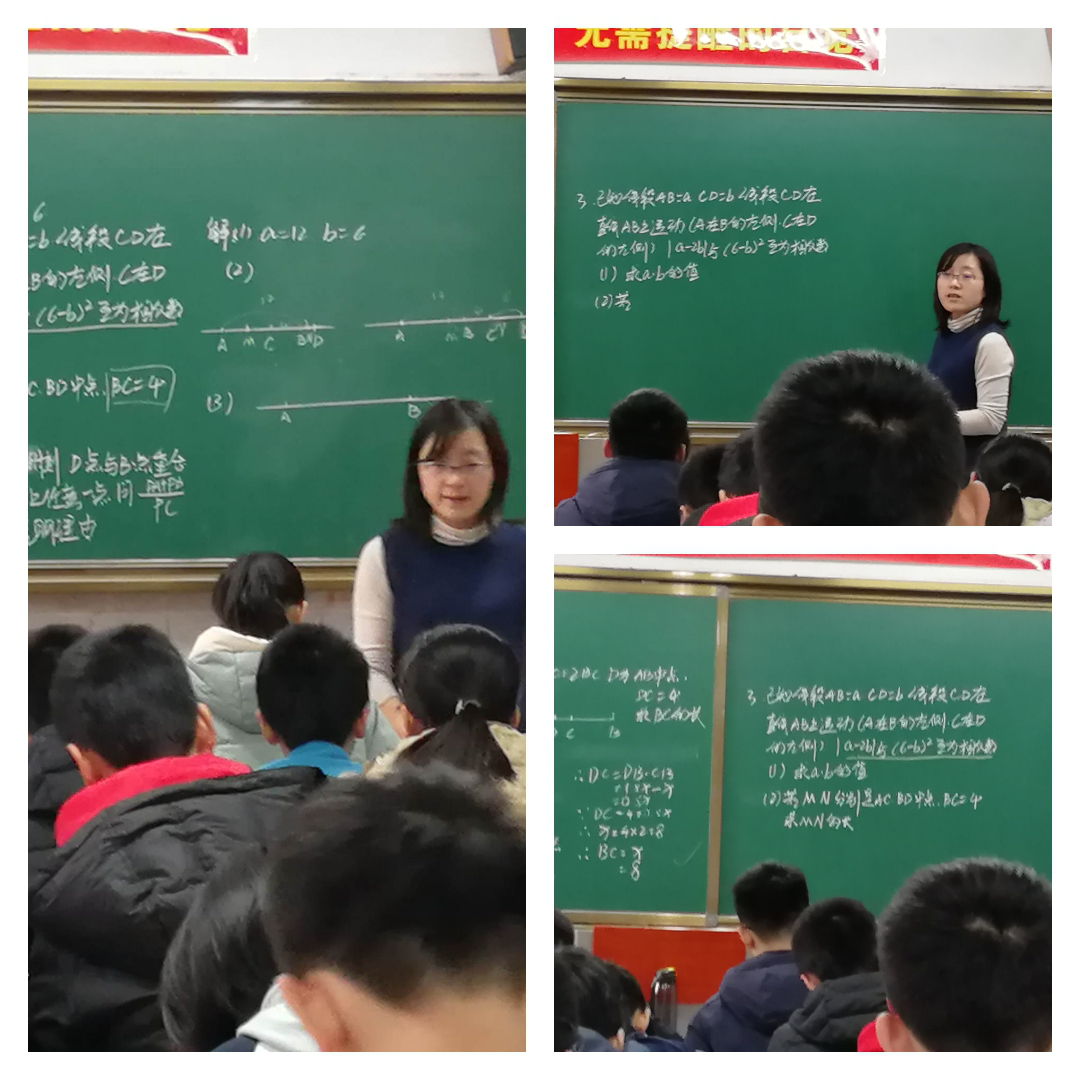 6
=b 线段CD在
B的左侧.C在D
(6-b)² 互为相反数
C.BD中点.BC=4
时刻 D点与B点重合
上任意一点 问 PA+PB
PC
解:(1) a=12 b=6
(2)
12
A M C B N D
12 6
A M B C N
(3)
A B
无需提醒的自觉
3. 已知线段AB=a CD=b 线段CD在
直线AB上运动(A在B的左侧.C在D
的左侧) |a-2b|与(6-b)² 互为相反数
(1) 求a.b的值
(2)若
C=2BC D为AB中点.
DC=4
求BC的长
C B
∴DC=DB-CB
=1.5x-x
=0.5x
∵DC=4
∴x=4×2=8
∴BC=x
=8
3. 已知线段AB=a CD=b 线段CD在
直线AB上运动(A在B的左侧.C在D
的左侧) |a-2b|与(6-b)² 互为相反数
(1) 求a.b的值
(2)若M N分别是AC BD中点.BC=4
求MN的长